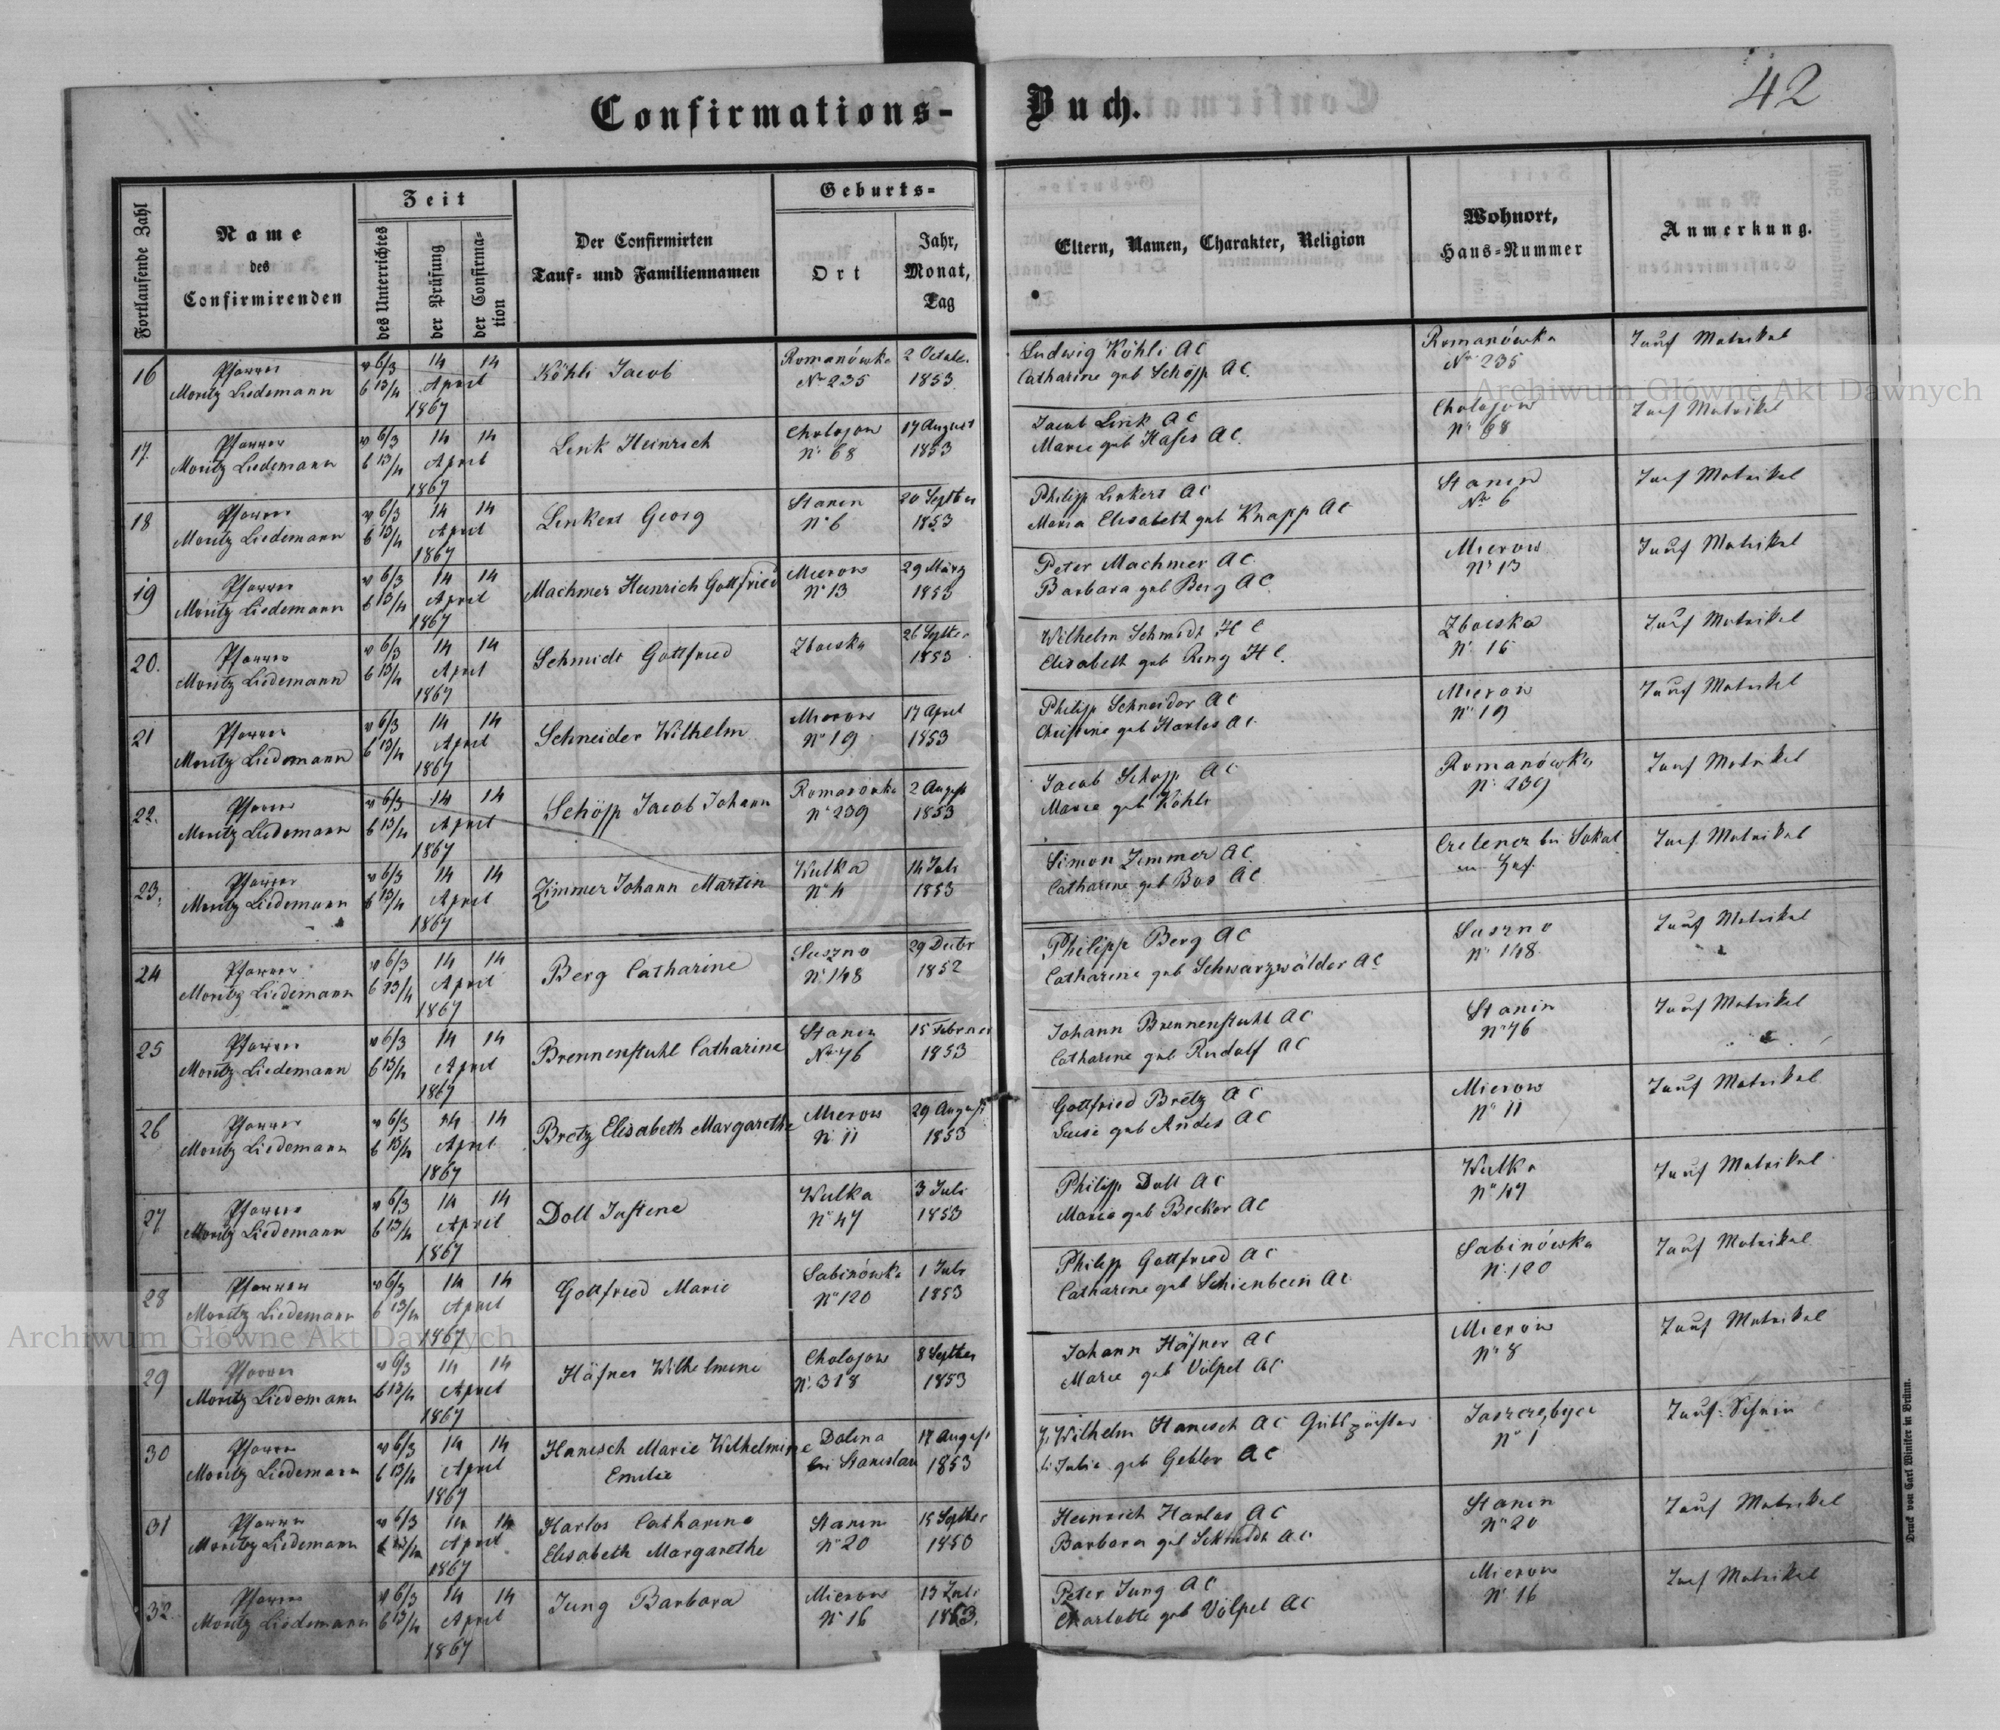 Confirmations-Buch.
42
Fortlaufende Zahl
Name
des
Confirmirenden
Zeit
des Unterrichtes
der Prüfung
der Confirmation
Der Confirmirten
Tauf- und Familiennamen
Geburts-
Ort
Jahr,
Monat,
Tag
Eltern, Namen, Charakter, Religion
Wohnort,
Haus-Nummer
Anmerkung.
16 Pfarrer Moritz Liedemann v 6/3 b 13/4 14 14 April 1867 Köhli Jacob Romanówka No 235 2 Octob. 1853 Ludwig Köhli AC Catharine geb Schöpp AC. Romanówka No 235 Tauf Matrikel
17. Pfarrer Moritz Liedemann v 6/3 b 13/4 14 14 April 1867 Link Heinrich Cholojow No 68 17 August 1853 Jacob Link AC Marie geb AC. Cholojow No 68 Tauf Matrikel
18 Pfarrer Moritz Liedemann v 6/3 b 13/4 14 14 April 1867 Linkert Georg Stanin No 6 20 Septber 1853 Philipp Linkert AC Maria Elisabeth geb Knapp AC Stanin No 6 Tauf Matrikel
19 Pfarrer Moritz Liedemann v 6/3 b 13/4 14 14 April 1867 Machmer Heinrich Gottfried Mierow No 13 29 März 1853 Peter Machmer AC. Barbara geb Berg AC Mierow No 13 Tauf Matrikel
20. Pfarrer Moritz Liedemann v 6/3 b 13/4 14 14 April 1867 Schmidt Gottfried Zboiska 26 Septber 1853 Wilhelm Schmidt HC Elisabeth geb Ring HC. Zboiska No 16 Tauf Matrikel
21 Pfarrer Moritz Liedemann v 6/3 b 13/4 14 14 April 1867 Schneider Wilhelm Mierow No 19 17 April 1853 Philipp Schneider AC Christine geb Harlos AC. Mierow No 19 Tauf Matrikel
22. Pfarrer Moritz Liedemann v 6/3 b 13/4 14 14 April 1867 Schöpp Jacob Johann Romanówka No 239 2 August 1853 Jacob Schöpp AC Marie geb Köhli Romanówka No 239 Tauf Matrikel
23. Pfarrer Moritz Liedemann v 6/3 b 13/4 14 14 April 1867 Zimmer Johann Martin Wulka No 4 14 Juli 1853 Simon Zimmer AC. Catharine geb Bos AC bei Sokal Tauf Matrikel
24 Pfarrer Moritz Liedemann v 6/3 b 13/4 14 14 April 1867 Berg Catharine Suszno No 148 29 Decbr 1852 Philipp Berg AC Catharine geb Schwarzwälder AC Suszno No 148 Tauf Matrikel
25 Pfarrer Moritz Liedemann v 6/3 b 13/4 14 14 April 1867 Brennenstuhl Catharine Stanin No 76 15 Februer 1853 Johann Brennenstuhl AC Catharine geb Rudolf AC Stanin No 76 Tauf Matrikel
26 Pfarrer Moritz Liedemann v 6/3 b 13/4 14 14 April 1867 Bretz Elisabeth Margarethe Mierow No 11 29 August 1853 Gottfried Bretz AC Luise geb Andes AC Mierow No 11 Tauf Matrikel
27 Pfarrer Moritz Liedemann v 6/3 b 13/4 14 14 April 1867 Doll Justine Wulka No 47 3 Juli 1853 Philipp Doll AC Marie geb Becker AC Wulka No 47 Tauf Matrikel
28 Pfarrer Moritz Liedemann v 6/3 b 13/4 14 14 April 1867 Gottfried Marie Sabinówka No 120 1 Juli 1853 Philipp Gottfried AC Catharine geb Schienbein AC. Sabinówka No 120 Tauf Matrikel
29 Pfarrer Moritz Liedemann v 6/3 b 13/4 14 14 April 1867 Häfner Wilhelmine Cholojow No 318 8 Septber 1853 Johann Häfner AC Marie geb Völpel AC Mierow No 8 Tauf Matrikel
30 Pfarrer Moritz Liedemann v 6/3 b 13/4 14 14 April 1867 Hanisch Marie Wilhelmine Emilie Dolina bei Stanislau 17 August 1853 Wilhelm Hanisch AC Julie geb Gebler AC No 1 Tauf-Schein
31 Pfarrer Moritz Liedemann v 6/3 b 13/4 14 14 April 1867 Harlos Catharina Elisabeth Margarethe Stanin No 20 15 Septber 1850 Heinrich Harlos AC Barbara geb Schmidt AC Stanin No 20 Tauf Matrikel
32. Pfarrer Moritz Liedemann v 6/3 b 13/4 14 14 April 1867 Jung Barbara Mierow No 16 13 Juli 1853. Peter Jung AC Charlotte geb Völpel AC Mierow No 16 Tauf Matrikel
Druck von Carl Winiker in Brünn.
Archiwum Główne Akt Dawnych
Archiwum Główne Akt Dawnych